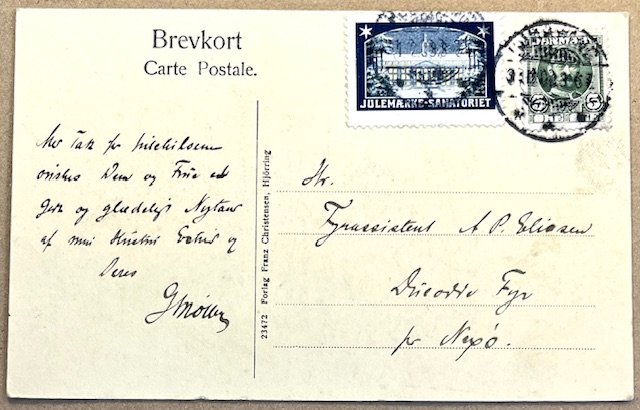 Brevkort
Carte Postale.
JULEMÆRKE-SANATORIET
DANMARK
5 5
Med Tak for Julehilsenen
ønskes Dem og Frue et
godt og glædeligt Nytaar
af min Hustru og
Deres
GMøller
23472 Forlag Franz Christensen, Hjörring
Hr.
Fyrassistent A P. Eliasen
Dueodde Fyr
pr Nexø.